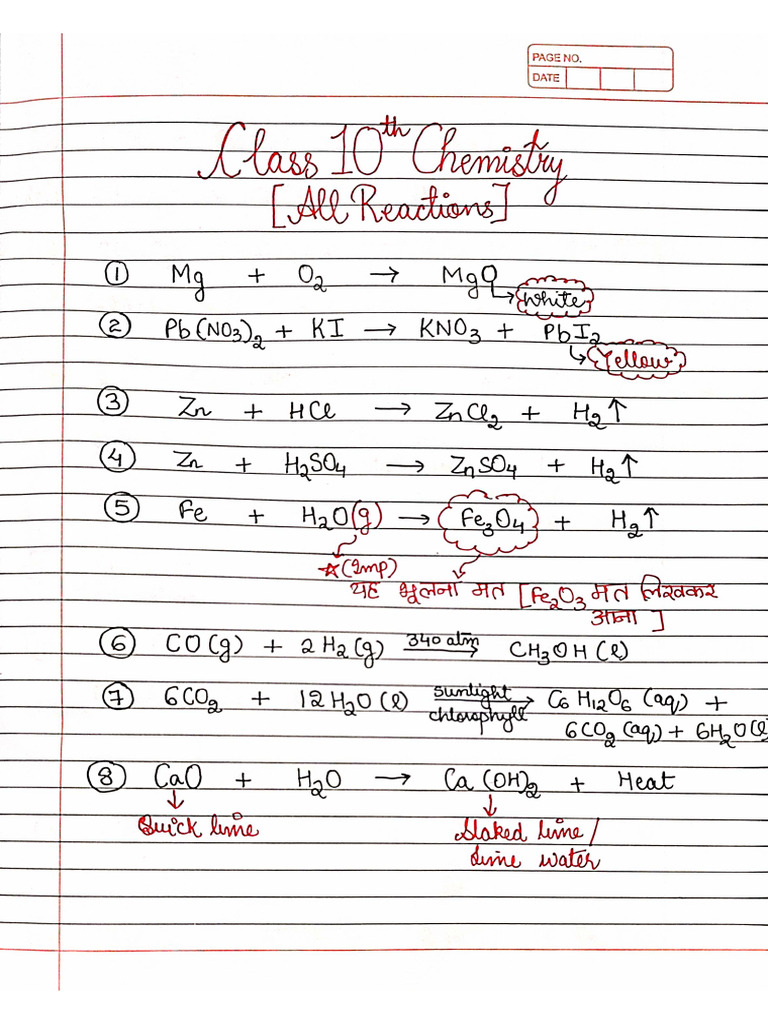 PAGE NO.
DATE
Class 10th Chemistry
[All Reactions]
① Mg + O₂ → MgO
White
② Pb(NO₃)₂ + KI → KNO₃ + PbI₂
Yellow
③ Zn + HCl → ZnCl₂ + H₂↑
④ Zn + H₂SO₄ → ZnSO₄ + H₂↑
⑤ Fe + H₂O(g) → Fe₃O₄ + H₂↑
☆(Imp)
यह भूलना मत [Fe₂O₃ मत लिखकर
आना]
⑥ CO(g) + 2H₂(g) 340 atm → CH₃OH(l)
⑦ 6CO₂ + 12H₂O(l) sunlight → chlorophyll C₆H₁₂O₆(aq) +
6CO₂(aq) + 6H₂O(l
⑧ CaO + H₂O → Ca(OH)₂ + Heat
Quick lime
Slaked lime/
Lime water